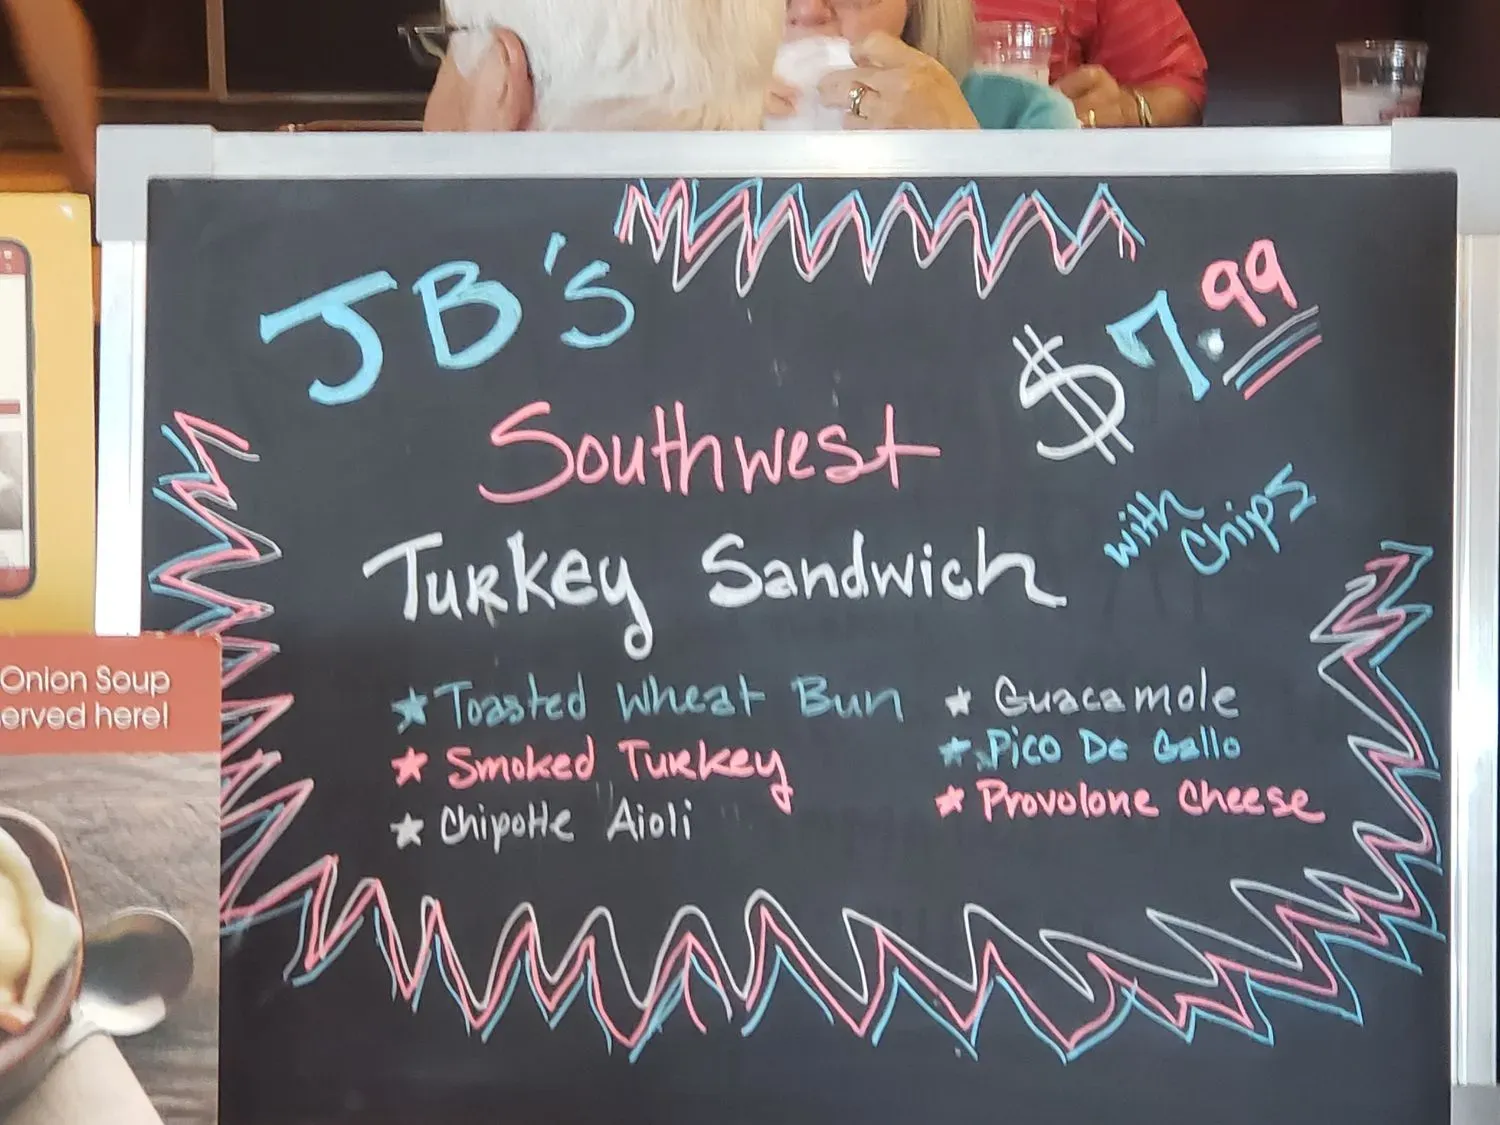 JB's
$7.99
Southwest
with chips
Turkey Sandwich
★ Toasted Wheat Bun
★ Smoked Turkey
★ Chipotle Aioli
★ Guacamole
★ Pico De Gallo
★ Provolone Cheese
Onion Soup
erved here!